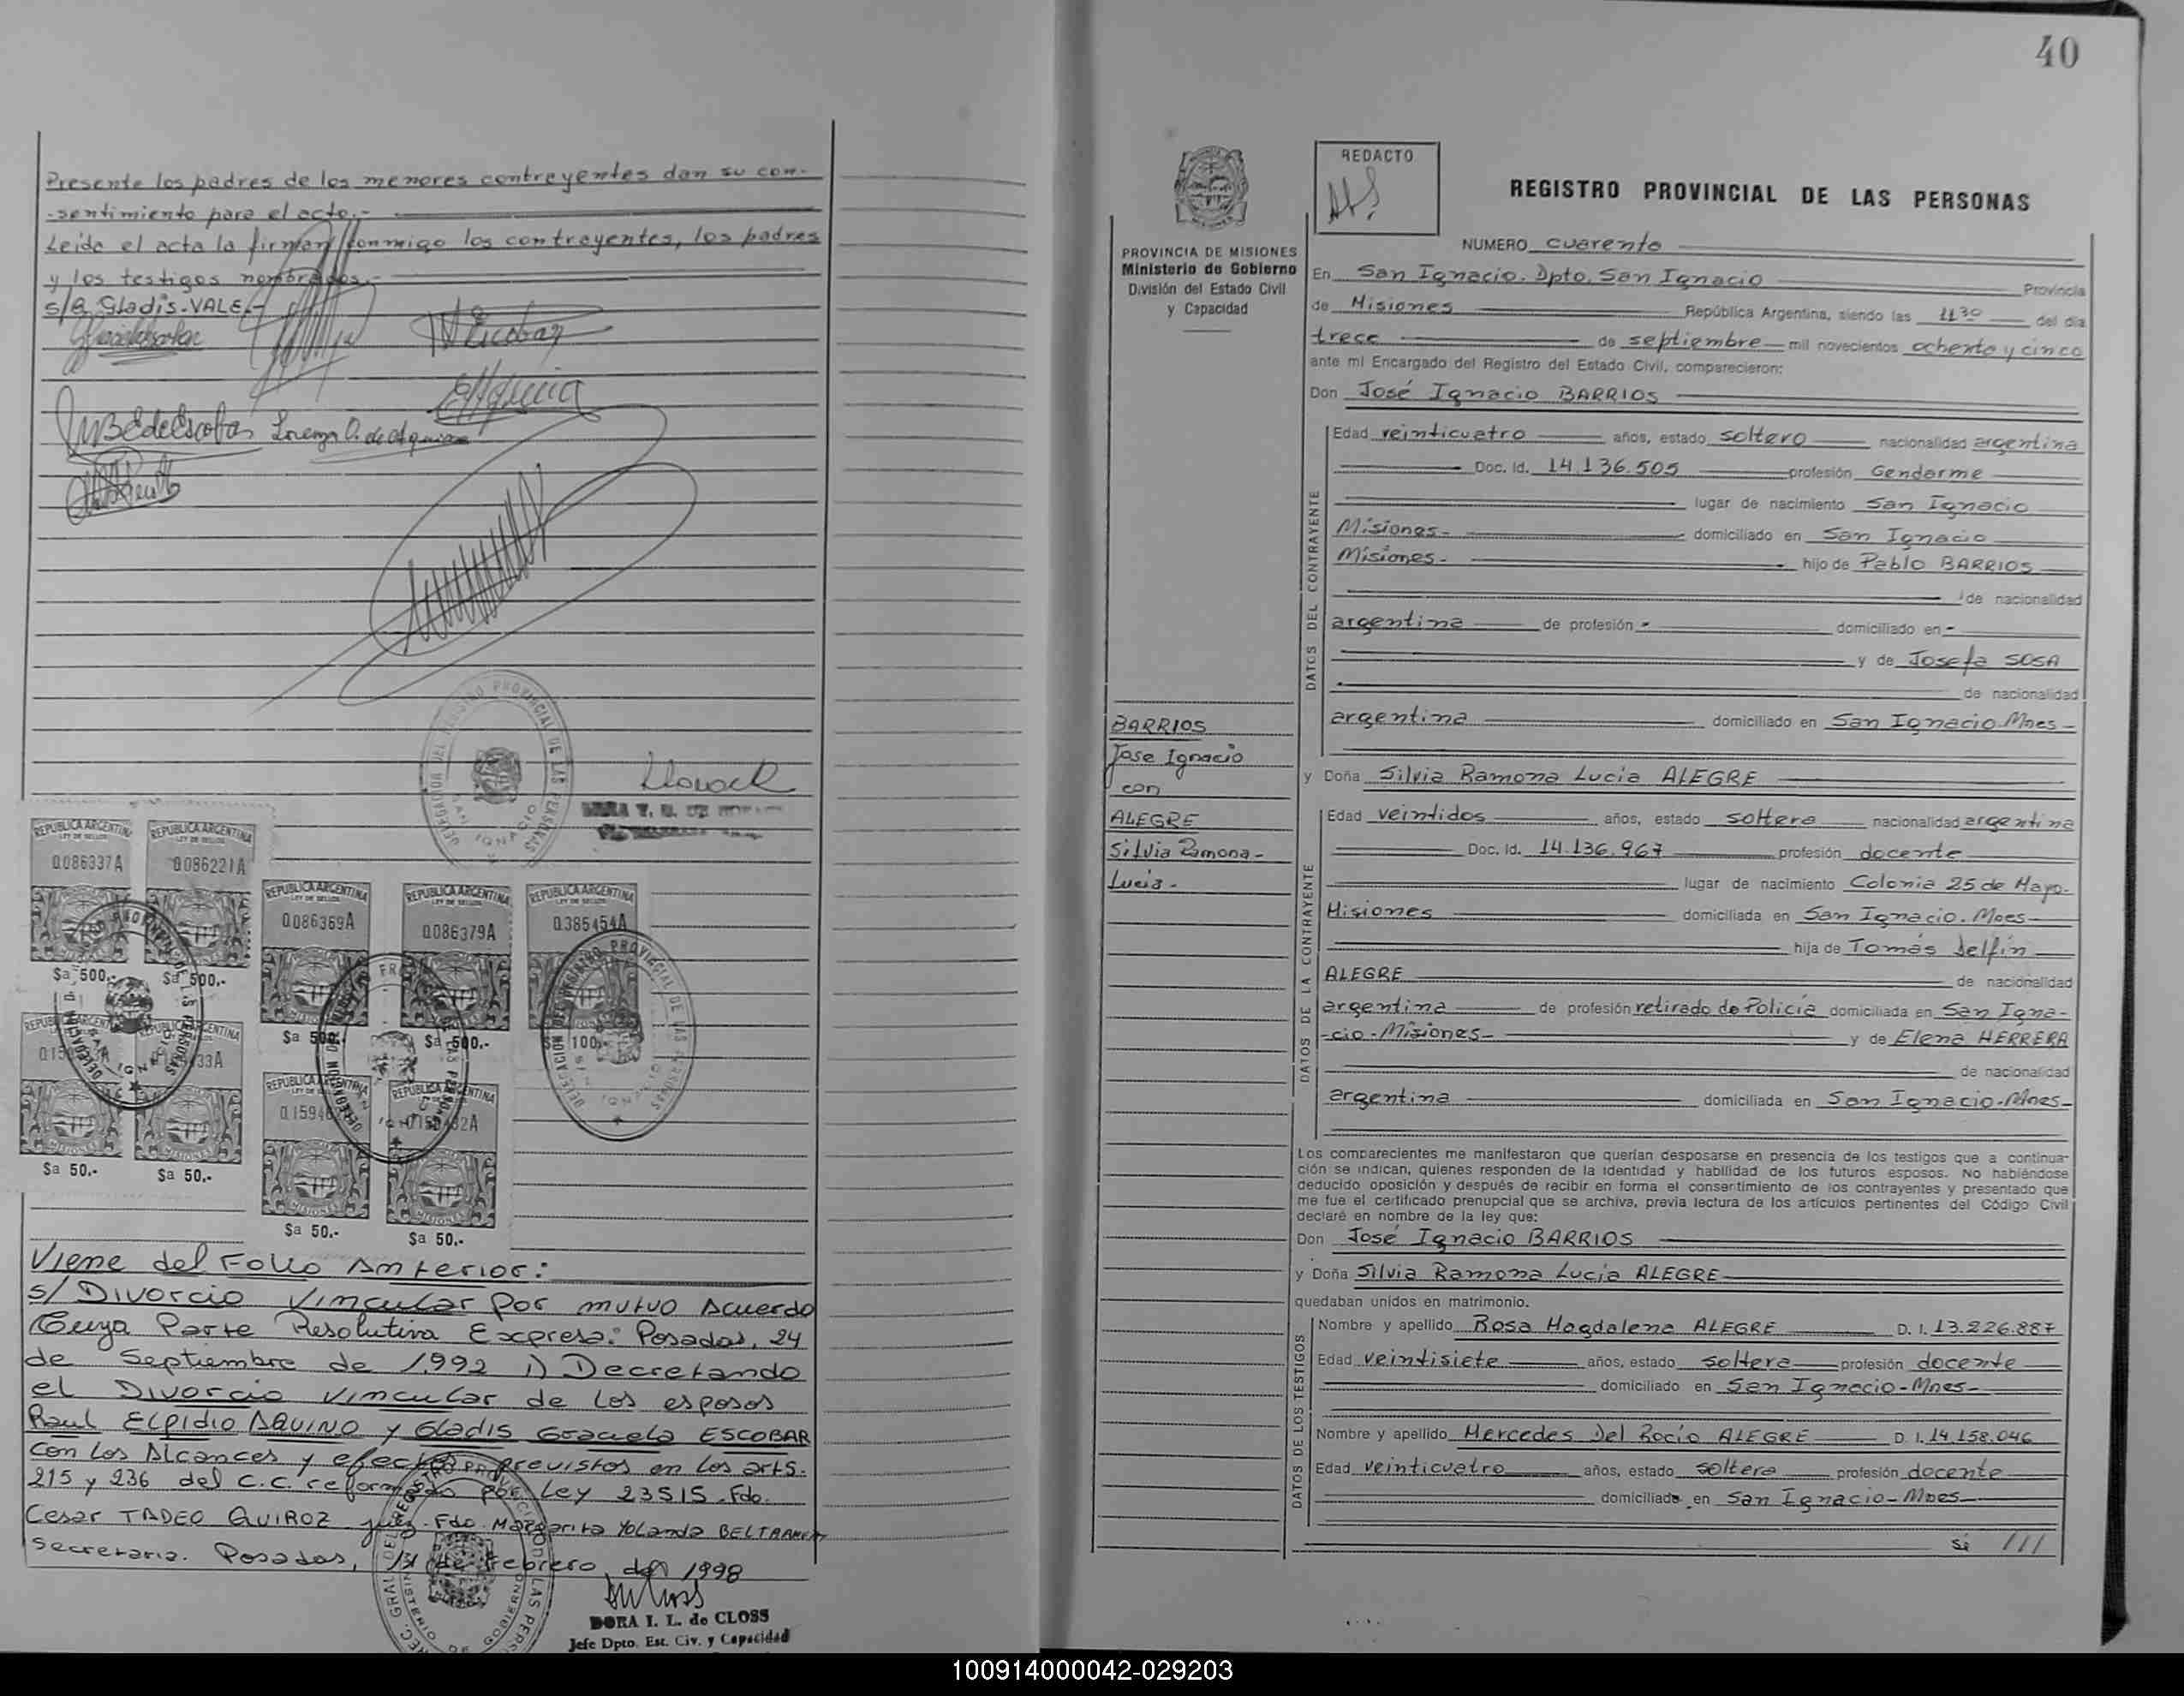 Presente los padres de los menores contrayentes dan su con-
-sentimiento para el acto.-
Leída el acta la firman conmigo los contrayentes, los padres
y los testigos nombrados.-
s/a Gladis-VALE.-
REGISTRO PROVINCIAL DE LAS PERSONAS
SAN IGNACIO
REPUBLICA ARGENTINA
LEY DE SELLOS
0.086337A
$a 500.-
REPUBLICA ARGENTINA
LEY DE SELLOS
0.086221A
$a 500.-
REPUBLICA ARGENTINA
LEY DE SELLOS
0.086369A
$a 500.-
REPUBLICA ARGENTINA
LEY DE SELLOS
0.086379A
$a 500.-
REPUBLICA ARGENTINA
LEY DE SELLOS
0.385454A
100.-
MISIONES
$a 50.-
MISIONES
$a 50.-
MISIONES
$a 50.-
MISIONES
$a 50.-
Viene del Folio Anterior:
s/ Divorcio Vincular por mutuo Acuerdo
Cuya Parte Resolutiva Expresa: Posadas, 24
de Septiembre de 1.992 1) Decretando
el Divorcio Vincular de los esposos
Raul ELPIDIO AQUINO y Gladis Graciela ESCOBAR
con los Alcances y efectos previstos en los arts.
215 y 236 del C.C. reformado por Ley 23515. Fdo.
Cesar TADEO QUIROZ Juez - Fdo Margarita Yolanda
Secretaria. Posadas, de Febrero de 1998
DORA I. L. de CLOSS
Jefe Dpto. Est. Civ. y Capacidad
40
PROVINCIA DE MISIONES
Ministerio de Gobierno
División del Estado Civil
y Capacidad
BARRIOS
Jose Ignacio
con
ALEGRE
Silvia Ramona-
Lucia-
REDACTO
REGISTRO PROVINCIAL DE LAS PERSONAS
NUMERO cuarenta
En San Ignacio. Dpto. San Ignacio Provincia
de Misiones República Argentina, siendo las 1130 del día
trece de septiembre mil novecientos ochenta y cinco
ante mi Encargado del Registro del Estado Civil, comparecieron:
Don José Ignacio BARRIOS
DATOS DEL CONTRAYENTE
Edad veinticuatro años, estado soltero nacionalidad argentina
Doc. Id. 14.136.505 profesión Gendarme
lugar de nacimiento San Ignacio
Misiones- domiciliado en San Ignacio
Misiones- hijo de Pablo BARRIOS
de nacionalidad
argentina de profesión - domiciliado en -
y de Josefa SOSA
de nacionalidad
argentina domiciliado en San Ignacio-Mnes-
y Doña Silvia Ramona Lucia ALEGRE
DATOS DE LA CONTRAYENTE
Edad veintidos años, estado soltera nacionalidad argentina
Doc. Id. 14.136.967 profesión docente
lugar de nacimiento Colonia 25 de Mayo-
Misiones domiciliada en San Ignacio. Mnes-
hija de Tomás Delfín
ALEGRE de nacionalidad
argentina de profesión retirado de Policía domiciliada en San Igna-
-cio-Misiones- y de Elena HERRERA
de nacionalidad
argentina domiciliada en San Ignacio-Mnes-
Los comparecientes me manifestaron que querían desposarse en presencia de los testigos que a continua-
ción se indican, quienes responden de la identidad y habilidad de los futuros esposos. No habiéndose
deducido oposición y después de recibir en forma el consentimiento de los contrayentes y presentado que
me fue el certificado prenupcial que se archiva, previa lectura de los artículos pertinentes del Código Civil
declaré en nombre de la ley que:
Don José Ignacio BARRIOS
y Doña Silvia Ramona Lucía ALEGRE
quedaban unidos en matrimonio.
DATOS DE LOS TESTIGOS
Nombre y apellido Rosa Magdalena ALEGRE D. I. 13.226.887
Edad veintisiete años, estado soltera profesión docente
domiciliado en San Ignacio-Mnes-
Nombre y apellido Mercedes Del Rocío ALEGRE D. I. 14.158.046
Edad veinticuatro años, estado soltera profesión docente
domiciliado en San Ignacio-Mnes-
Si ///
100914000042-029203